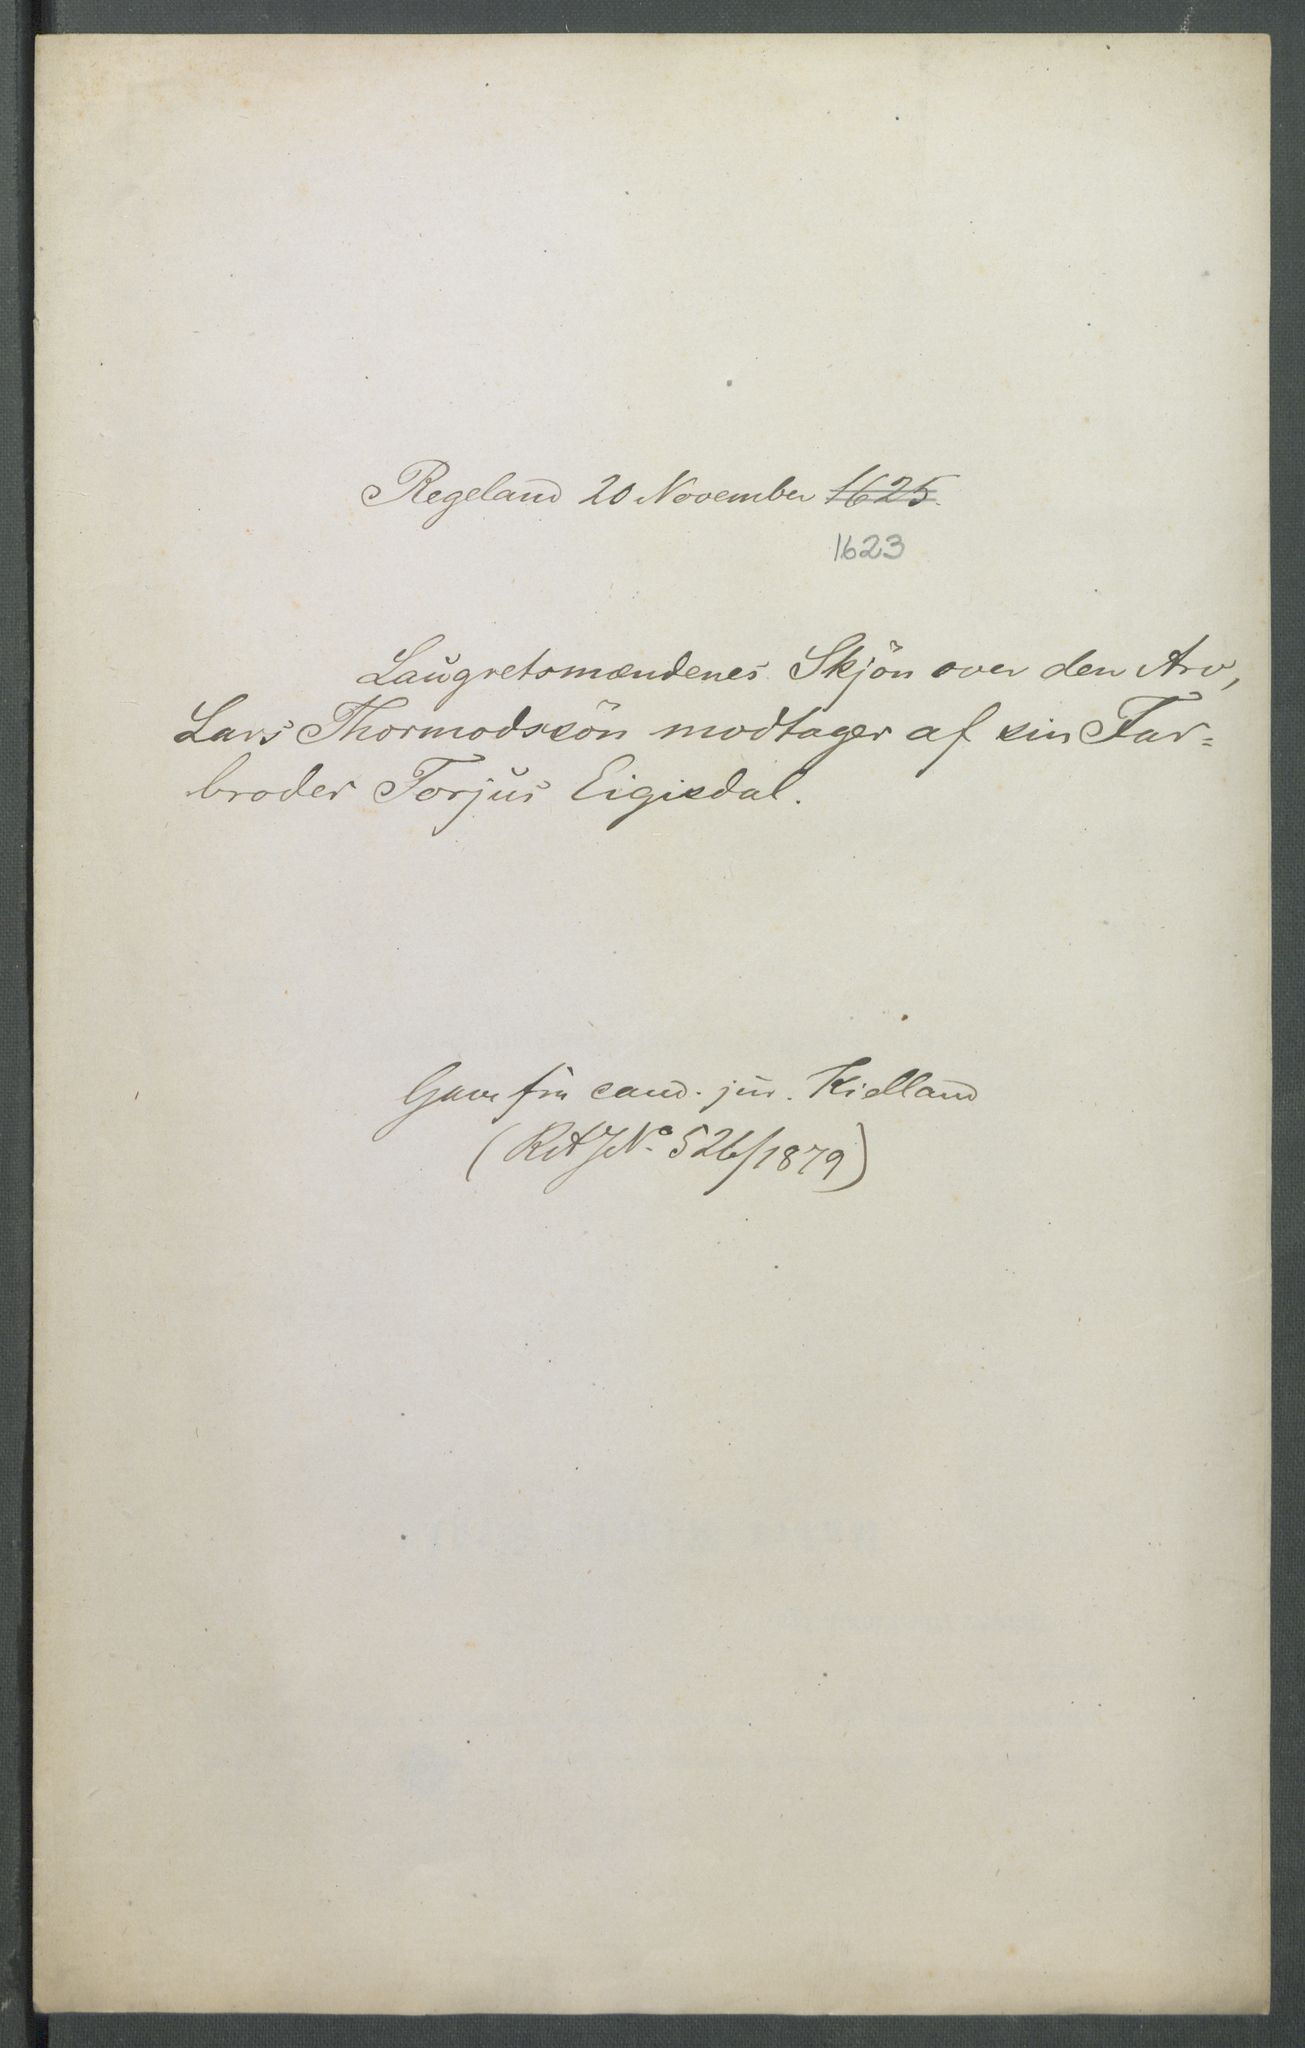 Regeland 20 November 1625.
1623
Laugretsmændenes Skjön over den Arv,
Lars Thormodssön modtager af sin Far=
broder Torjus Eigisdal.
Gave fra cand. jur. Kielland
(RAJNo. 526/1879)